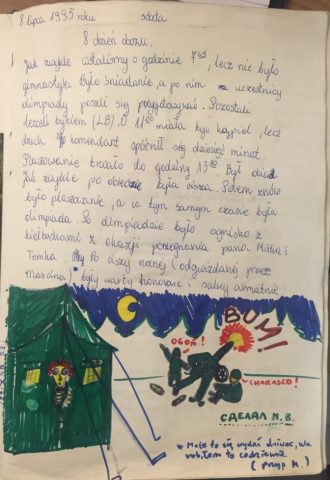 8 lipca 1995 roku sobota
8 dzień obozu.
Jak zwykle wstaliśmy o godzinie 7⁴⁵, lecz nie było
gimnastyki. Było śniadanie, a po nim uczestnicy
olimpiady poszli się przygotowywać. Pozostali
leżeli bykiem (LB). O 11⁰⁰ miała być kąpiel, lecz
druh komendant spóźnił się dziesięć minut.
Plażowanie trwało do godziny 13⁰⁰. Był obiad.
Jak zwykle po obiedzie była cisza. Potem znów
było plażowanie, a w tym samym czasie była
olimpiada. Po olimpiadzie było ognisko z
kiełbaskami z okazji pożegnania pana Mirka i
Tomka. Po ciszy nocnej (odgwizdanej przez
Marcina) były warty honorowe i salwy armatnie
BUM!
OGOŃ!
CHARASZO!
СДЕЛАЛ М.В.
* Może to się wydać dziwne, ale
robiłem to codziennie
(przyp. M.)